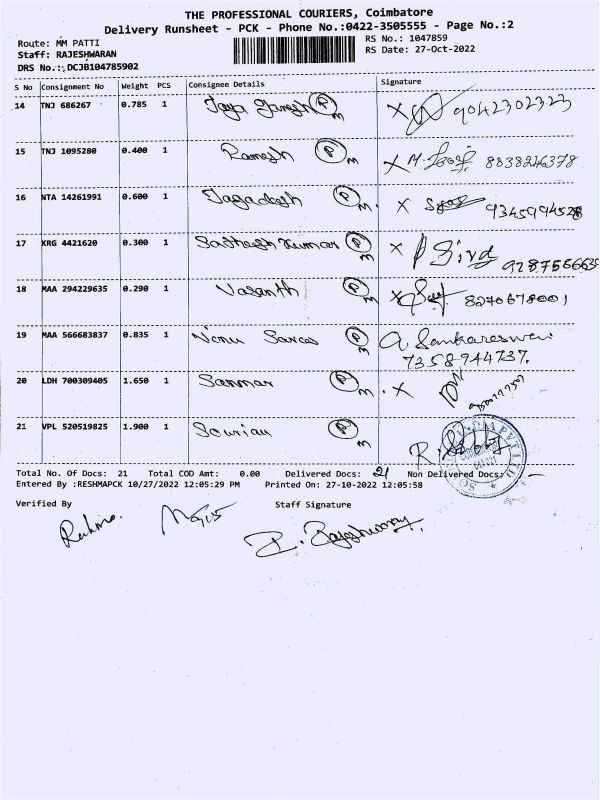 THE PROFESSIONAL COURIERS, Coimbatore
Delivery Runsheet - PCK - Phone No.:0422-3505555 - Page No.:2
Route: MM PATTI
RS No.: 1047859
Staff: RAJESHWARAN
RS Date: 27-Oct-2022
DRS No.:.DCJB104785902
S No Consignment No Weight PCS Consignee Details Signature
14 TNJ 686267 0.785 1 Jaya Ganesh P M X 9042302323
15 TNJ 1095280 0.400 1 Ramesh P M X 8838246378
16 NTA 14261991 0.600 1 Jagadesh P M. X 9345994528
17 KRG 4421620 0.300 1 Sathesh Kumar P M X P Siva
9287566635
18 MAA 294229635 0.290 1 Vasanth P M X 8270678001
19 MAA 566683837 0.835 1 P M A. Sankareswari
7358944737.
20 LDH 700309405 1.650 1 Sanmar P M . X
21 VPL 520519825 1.900 1 Sourian P M R.
Total No. Of Docs: 21 Total COD Amt: 0.00 Delivered Docs: 21 Non Delivered Docs: -
Entered By :RESHMAPCK 10/27/2022 12:05:29 PM Printed On: 27-10-2022 12:05:58
Verified By Staff Signature